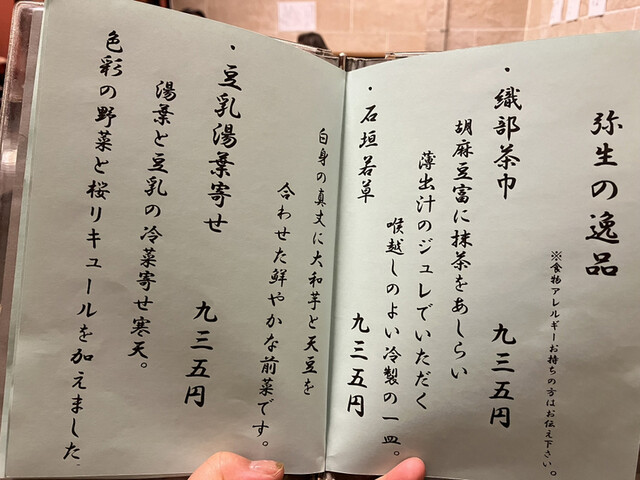 弥生の逸品
※食物アレルギーお持ちの方はお伝え下さい。
・織部茶巾 九三五円
胡麻豆富に抹茶をあしらい
薄出汁のジュレでいただく
喉越しのよい冷製の一皿。
・石垣若草 九三五円
白身の真丈に大和芋と天豆を
合わせた鮮やかな前菜です。
・豆乳湯葉寄せ 九三五円
湯葉と豆乳の冷菜寄せ寒天。
色彩の野菜と桜リキュールを加えました。